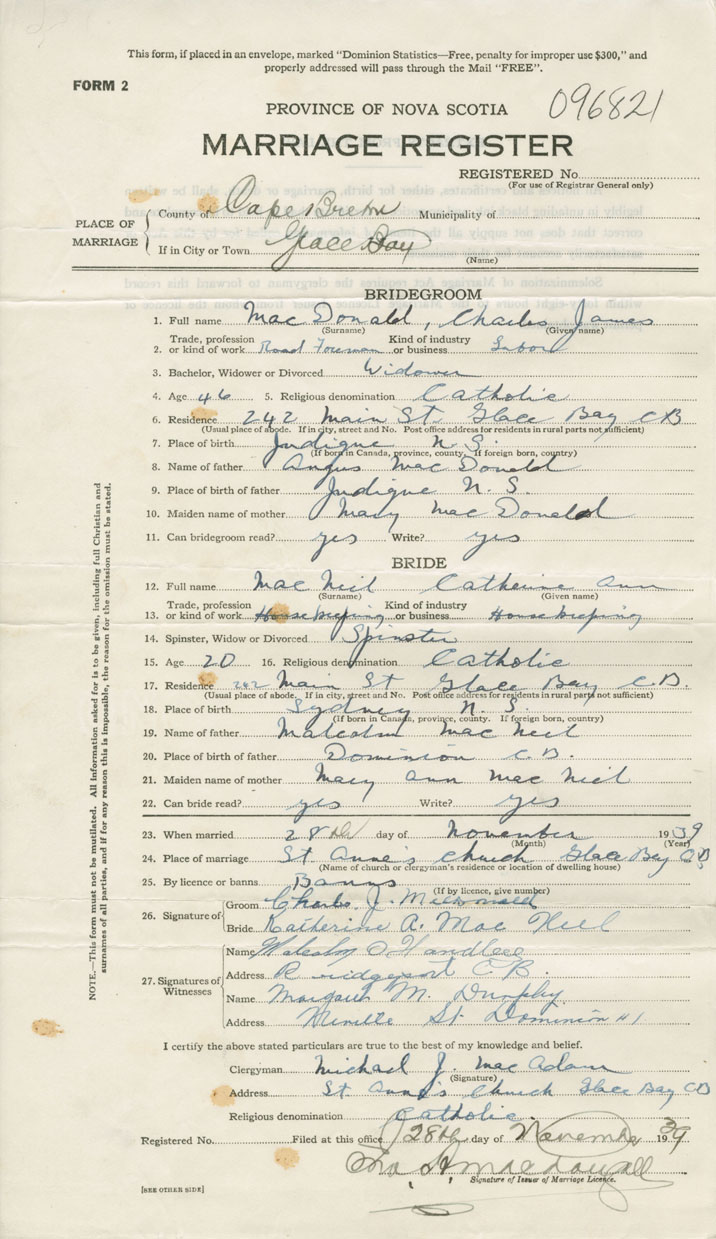 This form, if placed in an envelope, marked "Dominion Statistics—Free, penalty for improper use $300," and
properly addressed will pass through the Mail "FREE".
FORM 2
PROVINCE OF NOVA SCOTIA 096821
MARRIAGE REGISTER
REGISTERED No.
(For use of Registrar General only)
PLACE OF MARRIAGE
County of Cape Breton Municipality of
If in City or Town Glace Bay
(Name)
BRIDEGROOM
1. Full name Mac Donald, Charles James
(Surname) (Given name)
2. Trade, profession or kind of work Road Foreman Kind of industry or business Labor
3. Bachelor, Widower or Divorced Widower
4. Age 46 5. Religious denomination Catholic
6. Residence 242 Main St. Glace Bay CB
(Usual place of abode. If in city, street and No. Post office address for residents in rural parts not sufficient)
7. Place of birth Judique N.S.
(If born in Canada, province, county. If foreign born, country)
8. Name of father Angus Mac Donald
9. Place of birth of father Judique N.S.
10. Maiden name of mother Mary Mac Donald
11. Can bridegroom read? yes Write? yes
BRIDE
12. Full name Mac Neil Catherine Ann
(Surname) (Given name)
13. Trade, profession or kind of work Housekeeping Kind of industry or business Housekeeping
14. Spinster, Widow or Divorced Spinster
15. Age 20 16. Religious denomination Catholic
17. Residence 242 Main St Glace Bay C.B.
(Usual place of abode. If in city, street and No. Post office address for residents in rural parts not sufficient)
18. Place of birth Sydney N.S.
(If born in Canada, province, county. If foreign born, country)
19. Name of father Malcolm Mac Neil
20. Place of birth of father Dominion C.B.
21. Maiden name of mother Mary Ann Mac Neil
22. Can bride read? yes Write? yes
23. When married 28th day of November 1939
(Month) (Year)
24. Place of marriage St. Anne's Church Glace Bay CB
(Name of church or clergyman's residence or location of dwelling house)
25. By licence or banns Banns
(If by licence, give number)
26. Signature of
Groom Charles J. McDonald
Bride Katherine A. Mac Neil
27. Signatures of Witnesses
Name
Address C.B.
Name Margaret M. Dunphy
Address St Dominion #1
I certify the above stated particulars are true to the best of my knowledge and belief.
Clergyman Michael J. Mac Adam
(Signature)
Address St Anne's Church Glace Bay CB
Religious denomination Catholic
Registered No. Filed at this office 28th day of November 1939
Signature of Issuer of Marriage Licence.
[SEE OTHER SIDE]
NOTE.—This form must not be mutilated. All information asked for is to be given, including full Christian and
surnames of all parties, and if for any reason this is impossible, the reason for the omission must be stated.